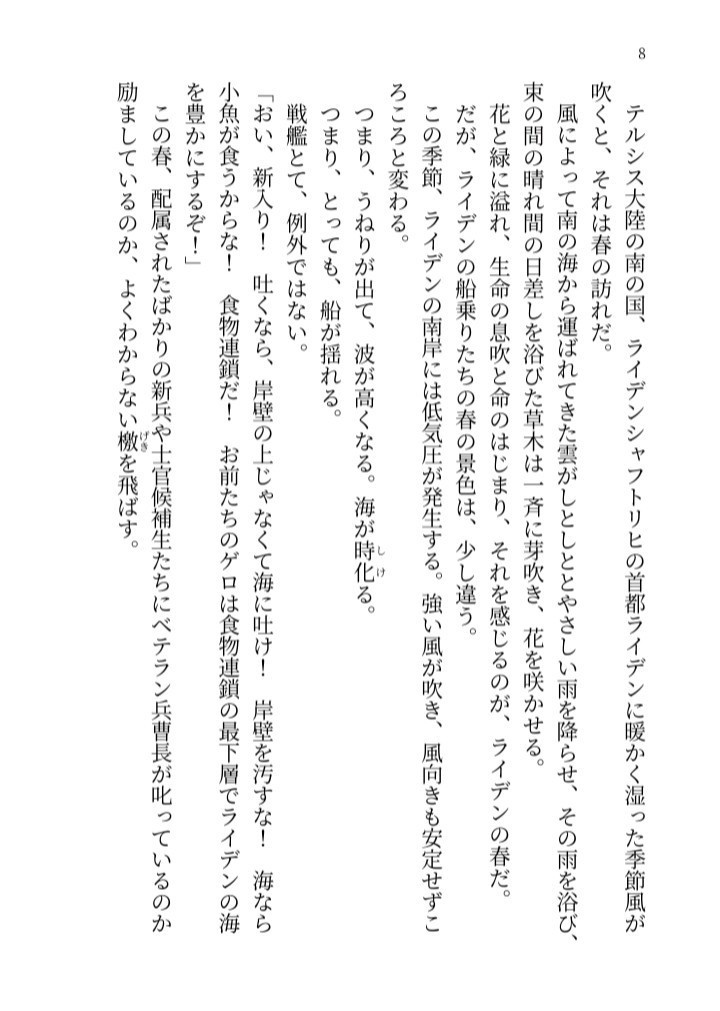 8
　テルシス大陸の南の国、ライデンシャフトリヒの首都ライデンに暖かく湿った季節風が
吹くと、それは春の訪れだ。
　風によって南の海から運ばれてきた雲がしとしととやさしい雨を降らせ、その雨を浴び、
束の間の晴れ間の日差しを浴びた草木は一斉に芽吹き、花を咲かせる。
　花と緑に溢れ、生命の息吹と命のはじまり、それを感じるのが、ライデンの春だ。
　だが、ライデンの船乗りたちの春の景色は、少し違う。
　この季節、ライデンの南岸には低気圧が発生する。強い風が吹き、風向きも安定せずこ
ろころと変わる。
　つまり、うねりが出て、波が高くなる。海が時化る。
しけ
　つまり、とっても、船が揺れる。
　戦艦とて、例外ではない。
「おい、新入り！　吐くなら、岸壁の上じゃなくて海に吐け！　岸壁を汚すな！　海なら
小魚が食うからな！　食物連鎖だ！　お前たちのゲロは食物連鎖の最下層でライデンの海
を豊かにするぞ！」
　この春、配属されたばかりの新兵や士官候補生たちにベテラン兵曹長が叱っているのか
励ましているのか、よくわからない檄を飛ばす。
げき